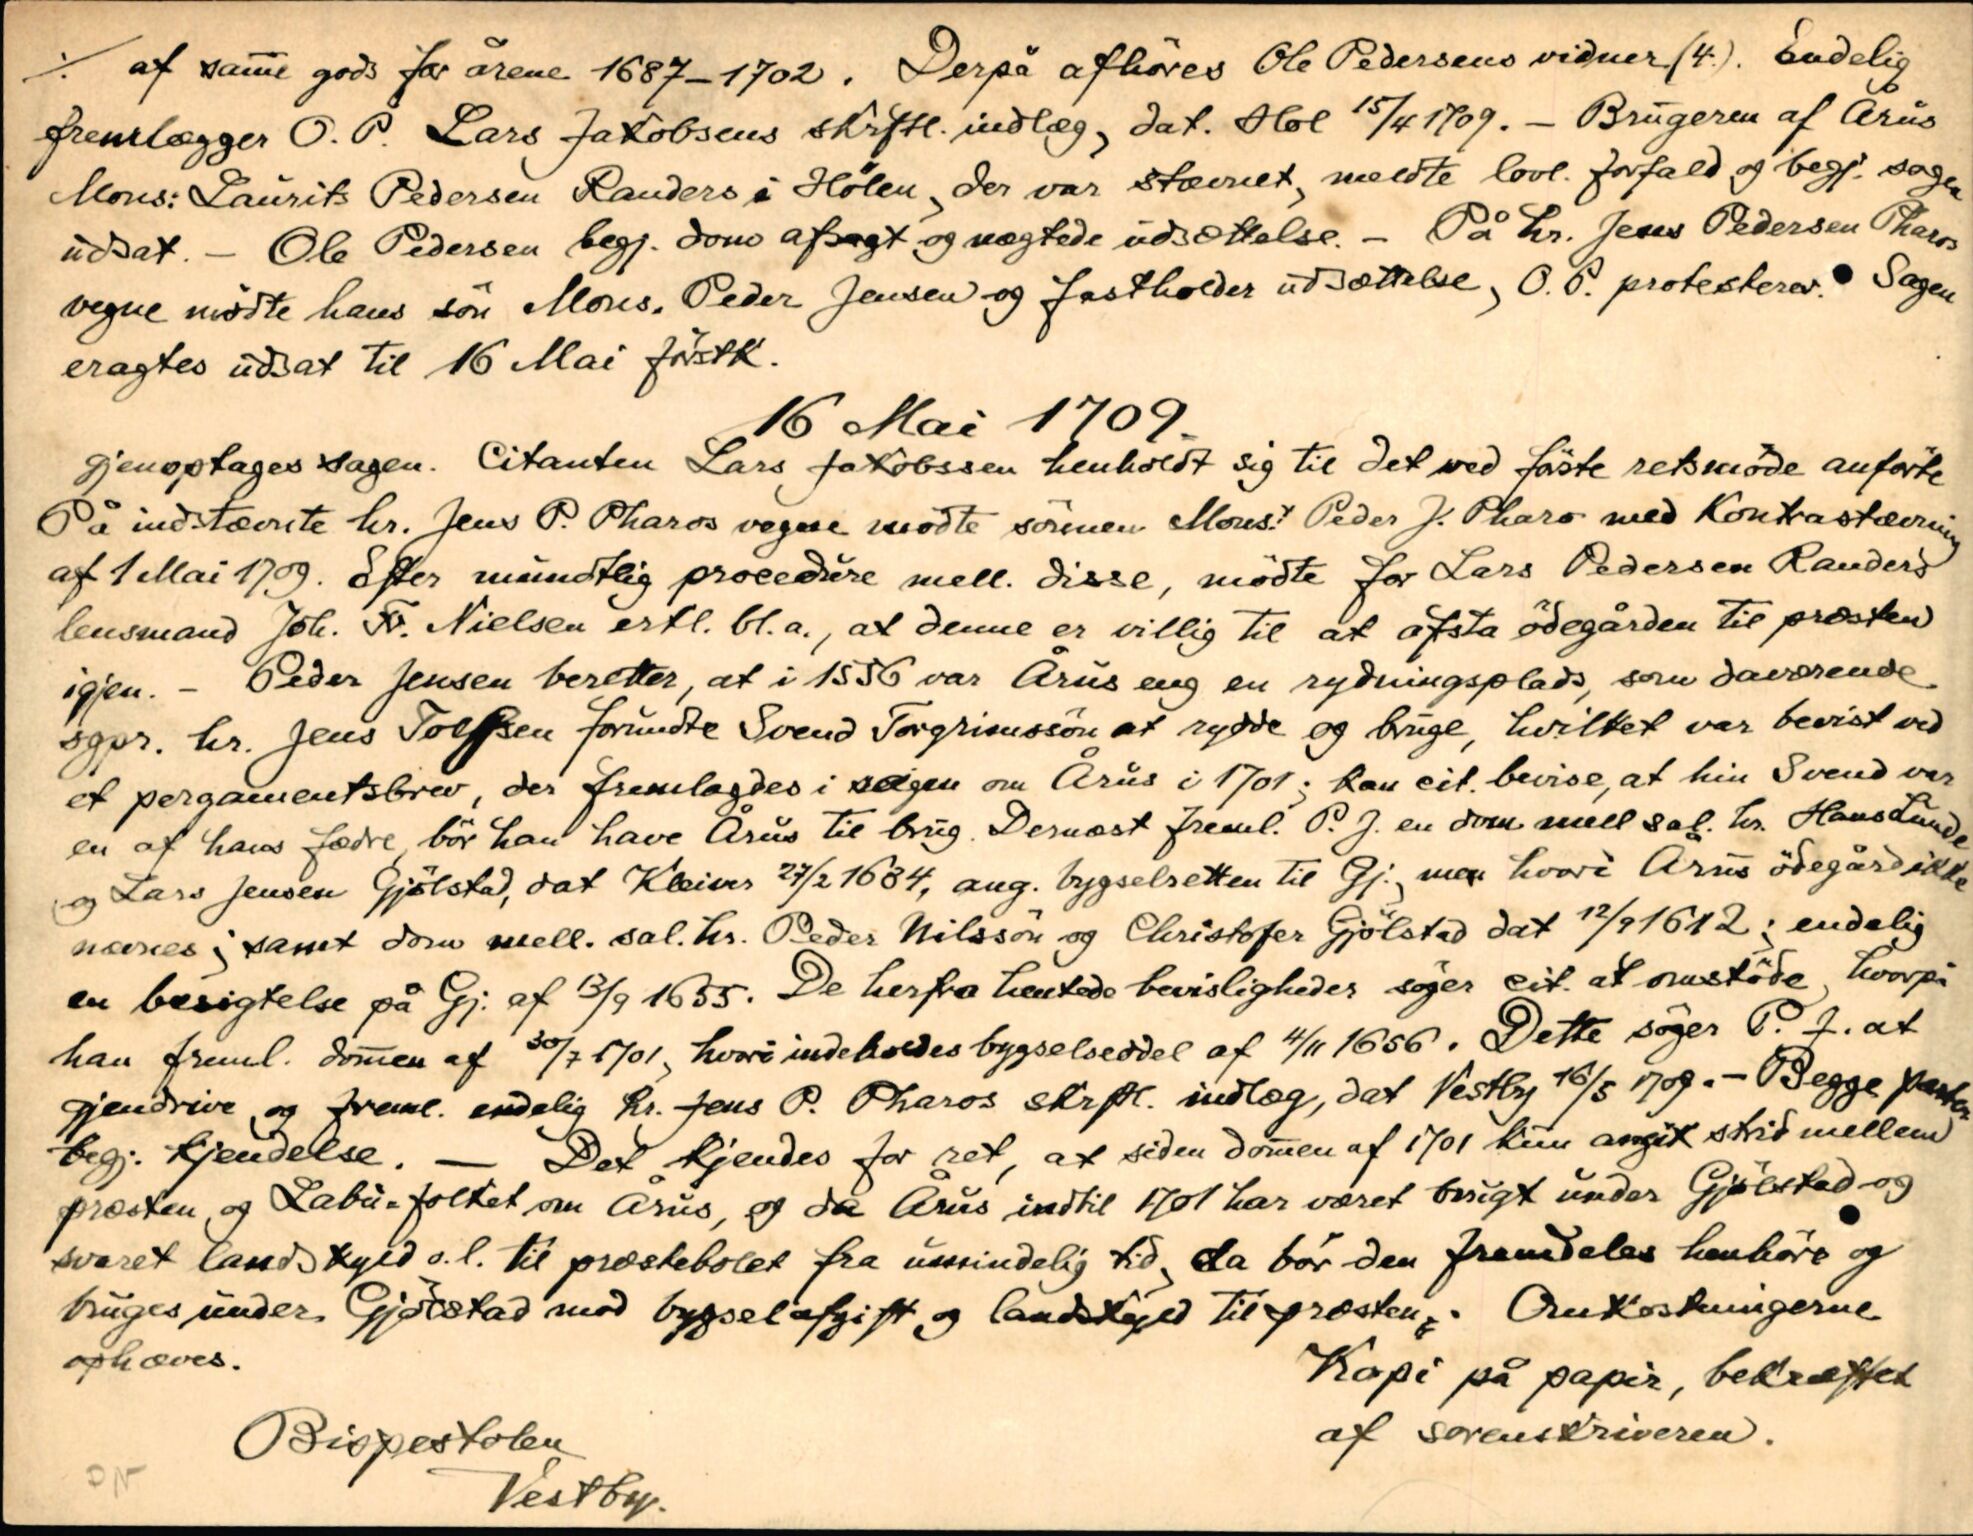 ./. af samme gods for årene 1687–1702. Derpå afhöres Ole Pedersens vidner (4.). Endelig
fremlægger O. P. Lars Jakobsens skriftl. indlæg, dat. Hol 15/4 1709. – Brugeren af Årus
Mons: Laurits Pedersen Randers i Hölen, der var stævnet, meldte lovl. forfald og begj. sagen
udsat. – Ole Pedersen begj. dom afsagt og nægtede udsættelse. – På hr. Jens Pedersen Pharos
vegne mödte hans sön Mons. Peder Jensen og fastholder udsættelse, O. P. protesterer. Sagen
eragtes udsat til 16 Mai förstk.
16 Mai 1709.
gjenoptages sagen. Citanten Lars Jakobssen henholdt sig til det ved förste retsmöde anförte
På indstævnte hr. Jens P. Pharos vegne mödte sönnen Mons.r Peder J. Pharo med Kontrastævning
af 1 Mai 1709. Efter mundtlig procedure mell. disse, mödte for Lars Pedersen Randers
lensmand Joh. Fr. Nielsen erkl. bl.a., at denne er villig til at afstå ödegården til præsten
igjen. – Peder Jensen beretter, at i 1556 var Årus eng en rydningsplads, som daværende
sgpr. hr. Jens Tolfsen forundte Svend Torgrimssön at rydde og bruge, hvilket var bevist ved
et pergamentsbrev, der fremlagdes i sagen om Årus i 1701; kan cit. bevise, at hin Svend var
en af hans fædre, bör han have Årus til brug. Dernæst freml. P. J. en dom mell sal. hr. Hans Lunde
og Lars Jensen Gjölstad, dat Kleiver 27/2 1684, ang. bygselretten til Gj., men hvori Årus ödegård ikke
nævnes; samt dom mell. sal. hr. Peder Nilssön og Christofer Gjölstad dat 12/9 1612; endelig
en besigtelse på Gj. af 13/9 1655. De herfra hentede bevisligheder söger cit. at omstöde, hvorpå
han freml. dommen af 30/7 1701, hvori indeholdes bygselseddel af 4/11 1656. Dette söger P. J. at
gjendrive og freml. endelig hr. Jens P. Pharos skrftl. indlæg, dat Vestby 16/5 1709. – Begge parter
begj. kjendelse. — Det kjendes for ret, at siden dommen af 1701 kun angik strid mellem
præsten og Labu-folket om Årus, og da Årus indtil 1701 har været brugt under Gjölstad og
svaret landskyld o.l. til præstebolet fra umindelig tid, da bör den fremdeles henhöre og
bruges under Gjölstad mod bygselafgift og landskyld til præsten. Omkostningerne
ophæves.
Kopi på papir, bekræftet
af sorenskriveren.
Bispestolen
Vestby.
DN